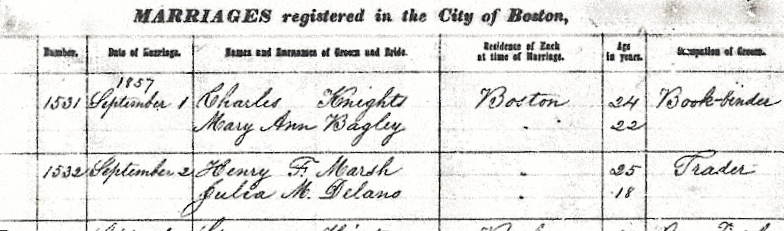 MARRIAGES registered in the City of Boston,
Number. Date of Marriage. Names and Surnames of Groom and Bride. Residence of Each at time of Marriage. Age in years. Occupation of Groom.
1857
1531 September 1 Charles Knights Boston 24 Book-binder
Mary Ann Bagley " 22
1532 September 2 Henry F. Marsh " 25 Trader
Julia M. Delano " 18